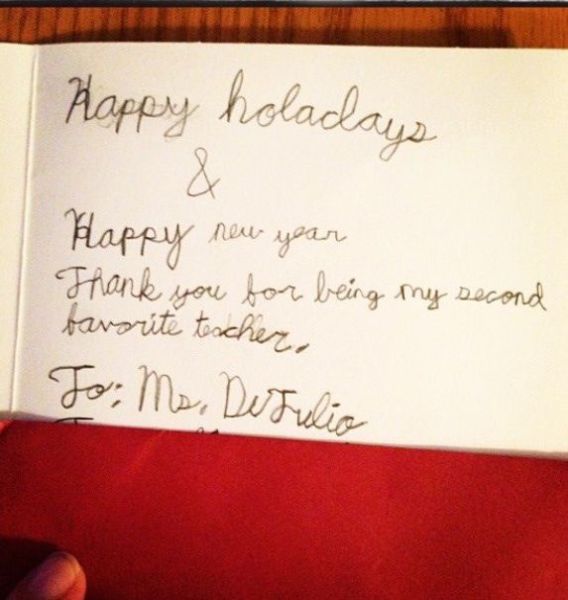 Happy holadays
&
Happy new year
Thank you for being my second
favorite teacher.
To: Ms. DeJulio